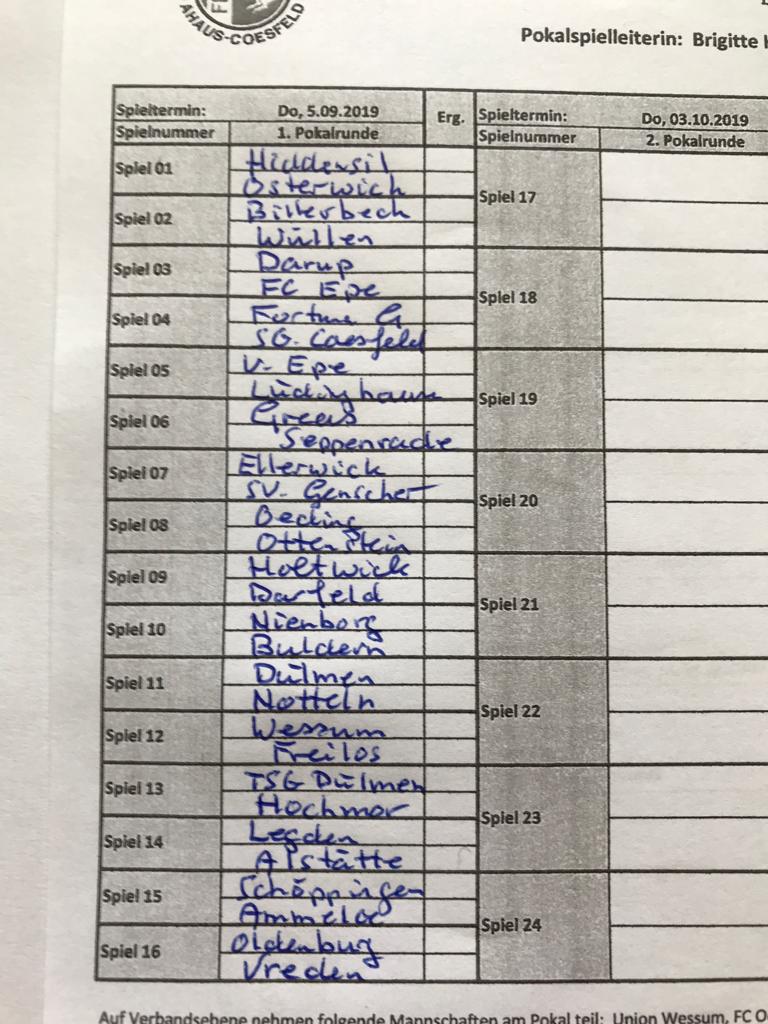 AHAUS-COESFELD
Pokalspielleiterin: Brigitte
Spieltermin: Do, 5.09.2019 Erg. Spieltermin: Do, 03.10.2019
Spielnummer 1. Pokalrunde Spielnummer 2. Pokalrunde
Spiel 01 Hiddensil
Osterwich
Spiel 02 Billerbeck
Wüllen
Spiel 03 Darup
FC Epe
Spiel 04 Fortuna G
SG. Coesfeld
Spiel 05 V. Epe
Lüdinghausen
Spiel 06
Seppenrade
Spiel 07 Ellerwick
SV. Genscher
Spiel 08 Oeding
Ottenstein
Spiel 09 Holtwick
Darfeld
Spiel 10 Nienborg
Buldern
Spiel 11 Dülmen
Notteln
Spiel 12 Wessum
Freilos
Spiel 13 TSG Dülmen
Hochmor
Spiel 14 Legden
Alstätte
Spiel 15 Schöppingen
Ammeloe
Spiel 16 Oldenburg
Vreden
Spiel 17
Spiel 18
Spiel 19
Spiel 20
Spiel 21
Spiel 22
Spiel 23
Spiel 24
Auf Verbandsebene nehmen folgende Mannschaften am Pokal teil: Union Wessum, FC